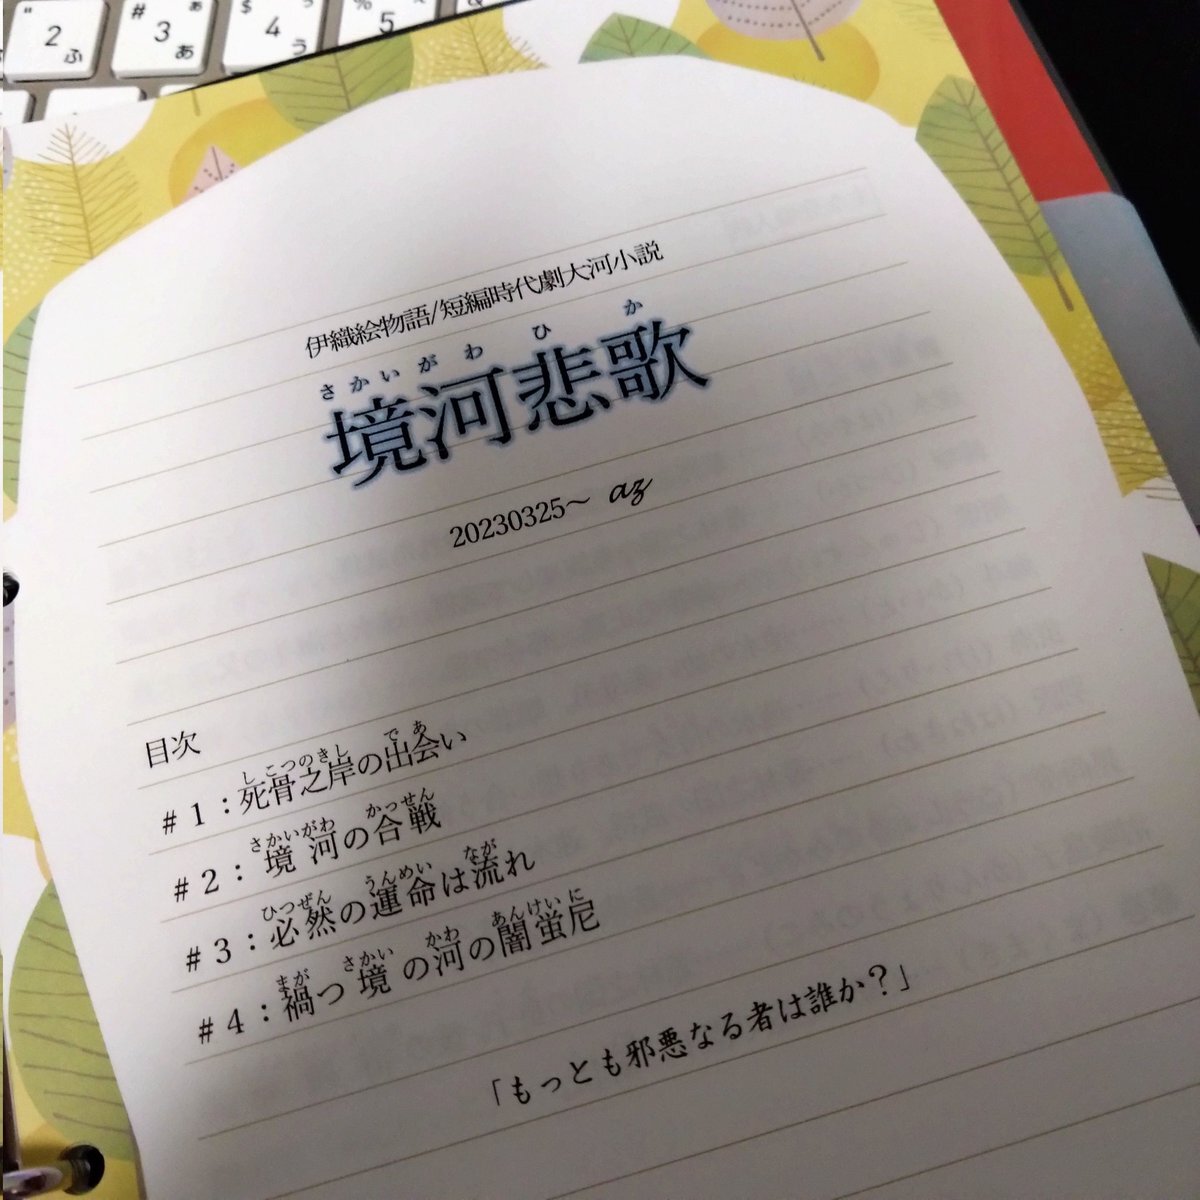 " 2 ふ
# ぁ 3 あ
$ ぅ 4 う
% 5
&
伊織絵物語/短編時代劇大河小説
さかいがわひか
境河悲歌
20230325～ az
目次
しこつのきし であ
#1：死骨之岸の出会い
さかいがわ かっせん
#2：境河の合戦
ひつぜん うんめい なが
#3：必然の運命は流れ
まが さかい かわ あんけいに
#4：禍つ境の河の闇蛍尼
「もっとも邪悪なる者は誰か？」